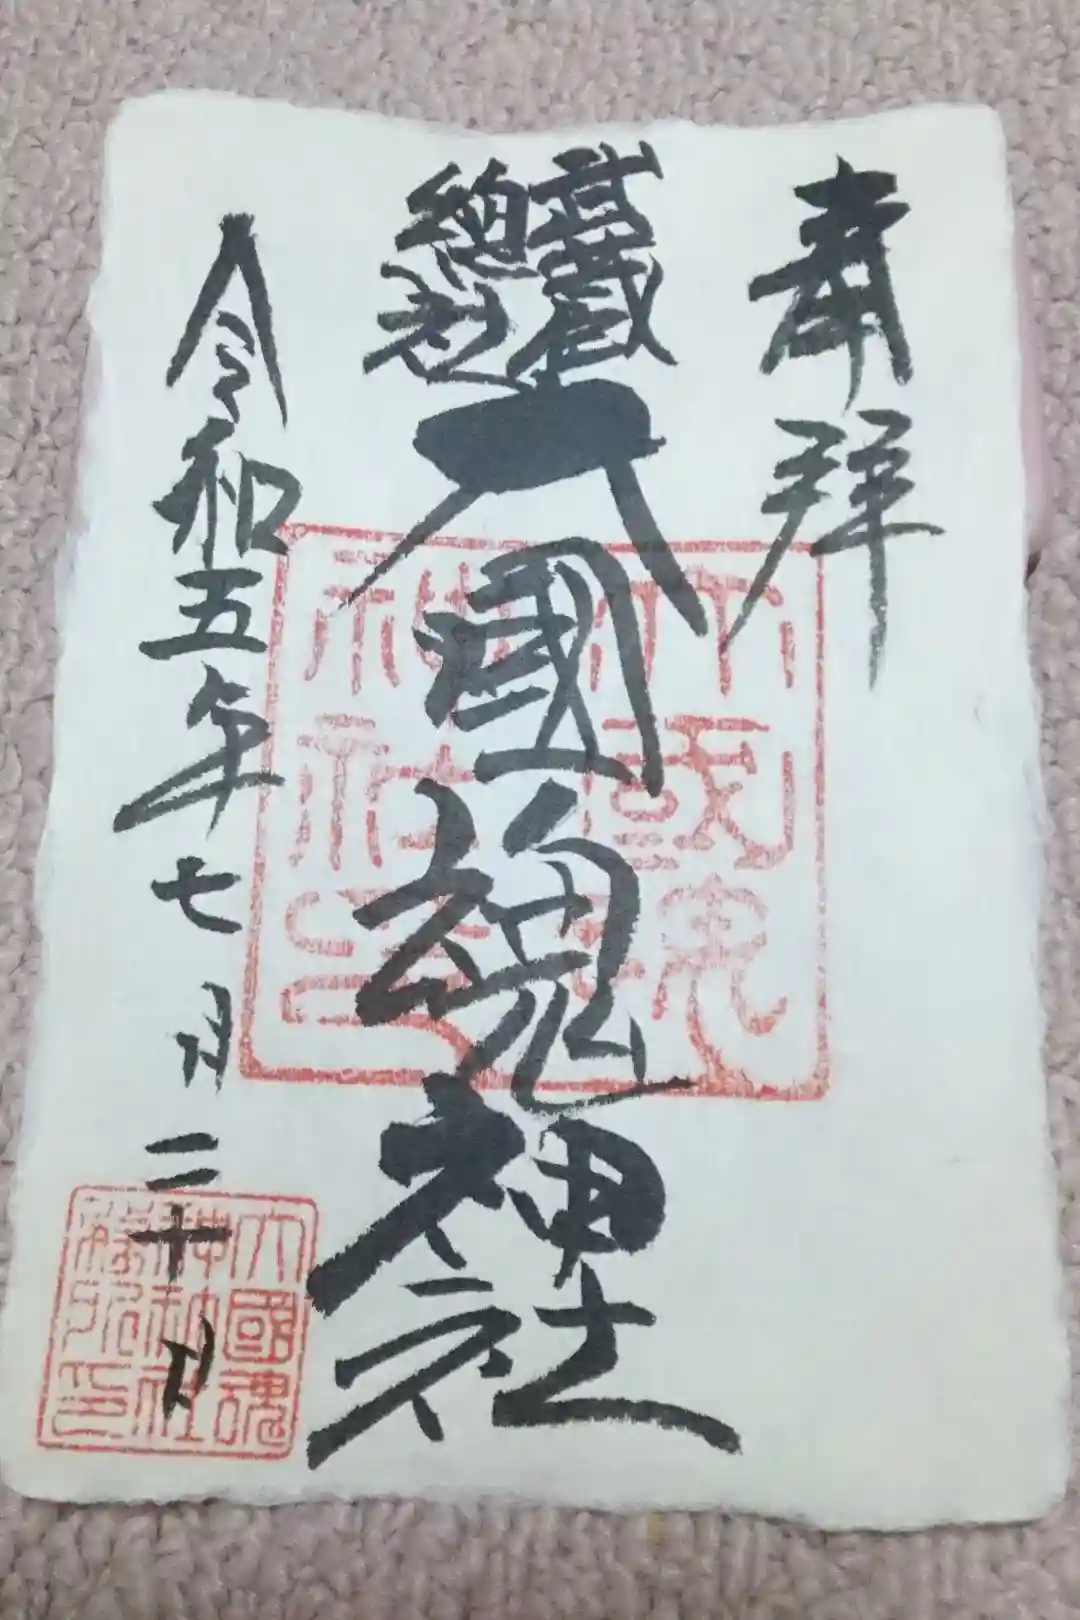 奉拝
武蔵
総社
大國魂神社
令和五年七月二十日
大國魂
神社印
大國魂
神社